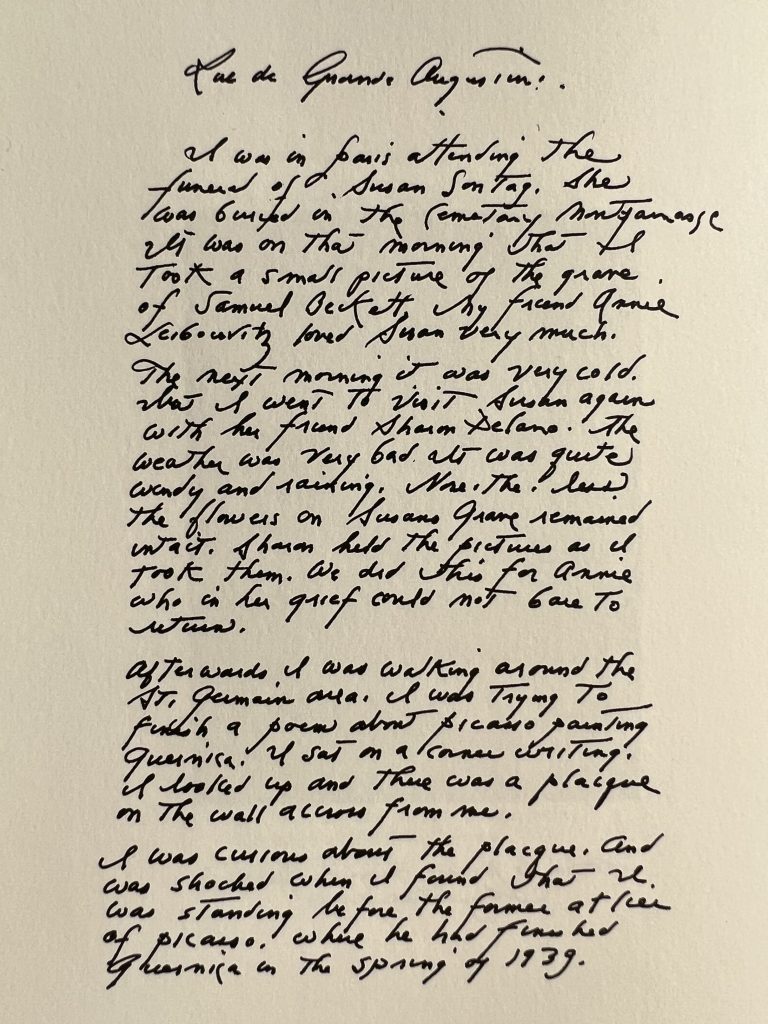 Rue de Grande Augustins.
I was in Paris attending the
funeral of Susan Sontag. She
was buried in the Cemetary Montparnasse
It was on that morning that I
took a small picture of the grave
of Samuel Beckett. My friend Annie
Leibowitz loved Susan very much.
The next morning it was very cold.
but I went to visit Susan again
with her friend Sharon Delano. The
weather was very bad. It was quite
windy and raining. None.the.less
the flowers on Susans Grave remained
intact. Sharon held the pictures as I
took them. We did this for Annie
who in her grief could not bare to
return.
Afterwards I was walking around the
St. Germain area. I was trying to
finish a poem about picasso painting
Guernica. I sat on a corner writing.
I looked up and there was a placque
on the wall accross from me.
I was curious about the placque. And
was shocked when I found that I
was standing before the former atlier
of picasso. where he had finished
Guernica in the spring of 1939.